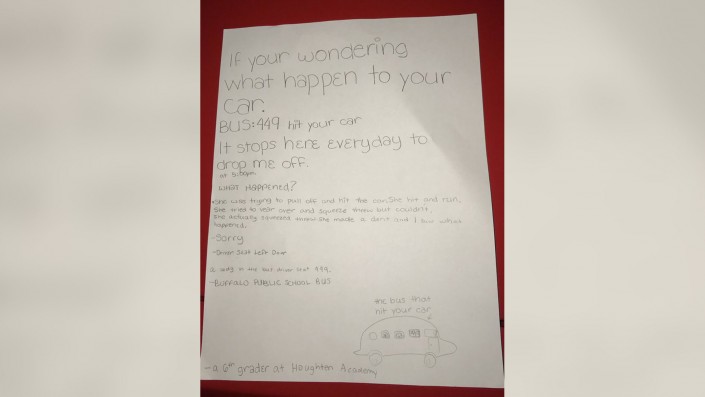 If your wondering
what happen to your
car.
BUS:449 hit your car
It stops here everyday to
drop me off.
at 5:00pm
WHAT HAPPENED?
She was trying to pull off and hit the car. She hit and run.
She tried to veer over and squeeze threw but couldn't.
She actually squeezed threw she made a dent and I saw what
happened.
-Sorry
Left Door
A lady is the bus driver that 449.
-BUFFALO PUBLIC SCHOOL BUS
the bus that
hit your car
-a 6th grader at Houghten Academy